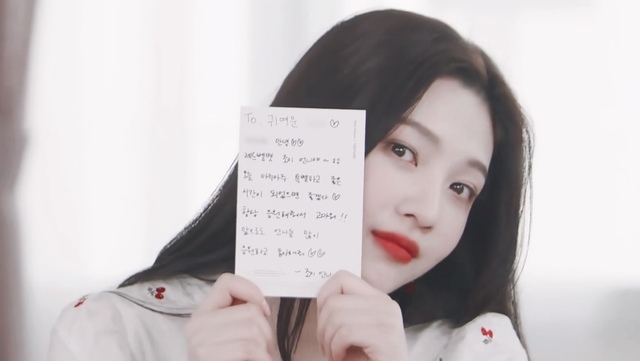 To. 귀여운 ♡
안녕♡♡
레드벨벳 조이 언니야~
오늘 아주아주 특별하고 좋은
시간이 되었으면 좋겠다 ♡
항상 응원해줘서 고마워!!
앞으로도 언니들 많이
응원하고 ♡♡
~ 조이 언니